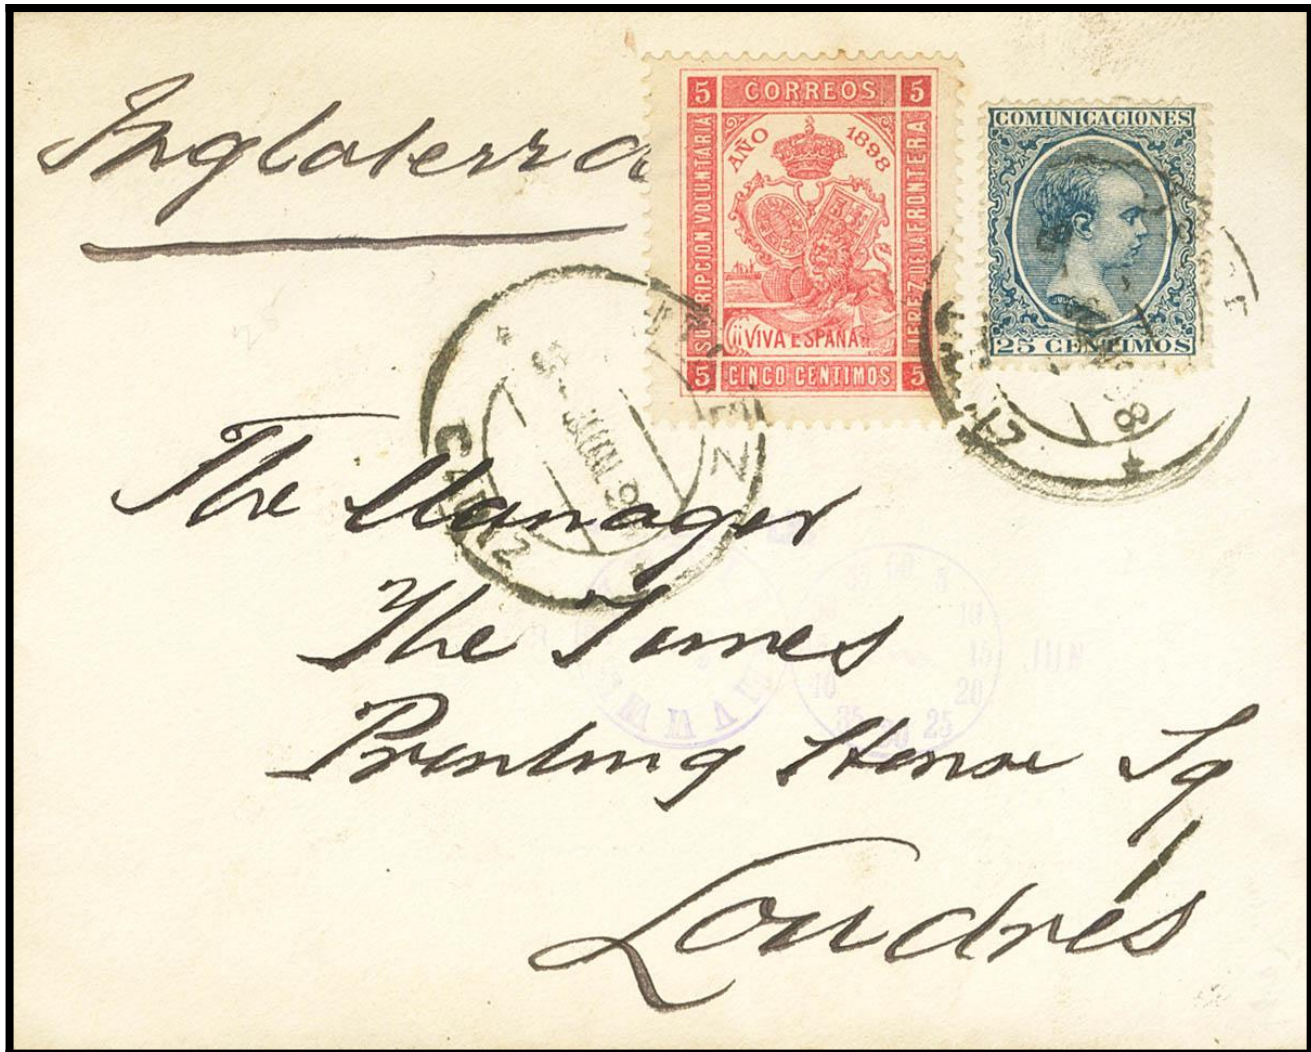 Inglaterra
5 CORREOS 5
SUSCRIPCION VOLUNTARIA
AÑO 1898
JEREZ DE LA FRONTERA
¡¡VIVA ESPAÑA!!
5 CINCO CENTIMOS 5
COMUNICACIONES
25 CENTIMOS
CADIZ
JUN
CADIZ
The Manager
The Times
Printing House Sq
Londrés
00 5 10 15 20 25 30 35 40
JUN